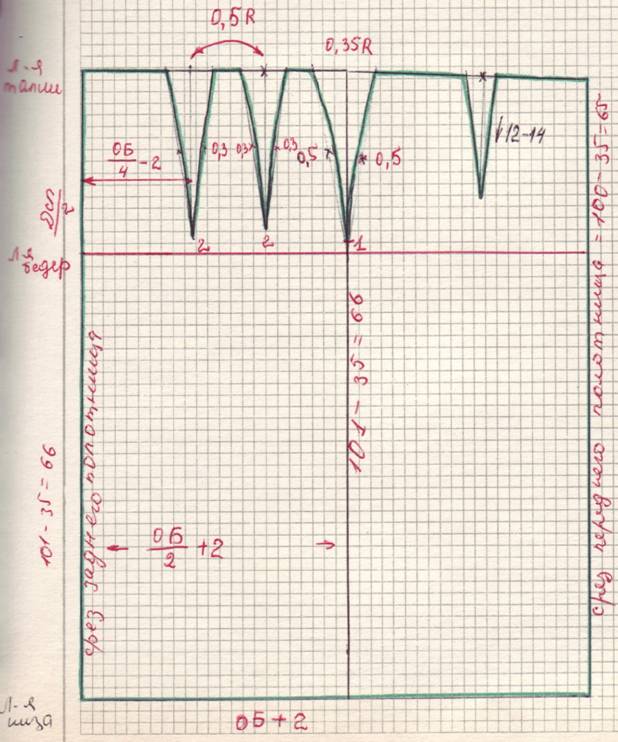 0,5R
0,35R
Л-я
талии
ОБ
4
-2
0,3
0,3
0,3
0,5
0,5
12-14
Дсп
2
2
2
1
Л-я
бедер
срез заднего полотнища
101-35=66
101-35=66
срез переднего полотнища = 100-35=65
ОБ
2
+2
Л-я
низа
ОБ+2